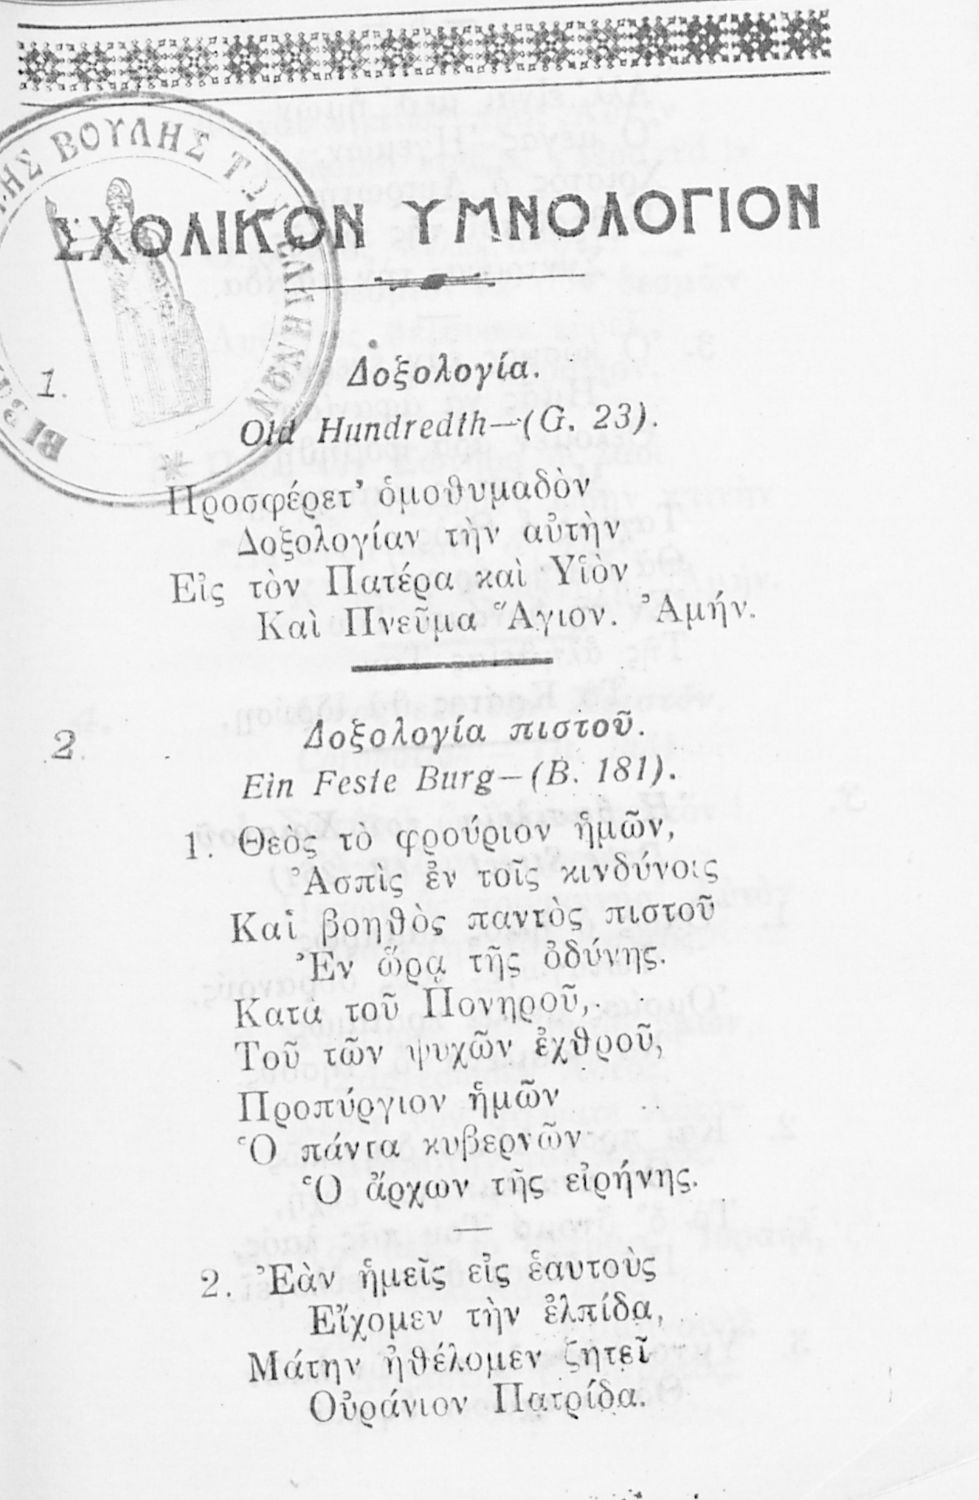 ΒΟΥΛΗΣ ΤΩΝ ΕΛΛΗΝΩΝ
ΣΧΟΛΙΚΟΝ ΥΜΝΟΛΟΓΙΟΝ
1. Δοξολογία.
Old Hundredth—(G. 23).
Προσφέρετ’ ὁμοθυμαδὸν
Δοξολογίαν τὴν αὐτὴν
Εἰς τὸν Πατέρα καὶ Υἱὸν
Καὶ Πνεῦμα Ἅγιον. Ἀμήν.
2. Δοξολογία πιστοῦ.
Ein Feste Burg—(B. 181).
1. Θεὸς τὸ φρούριον ἡμῶν,
Ἀσπὶς ἐν τοῖς κινδύνοις
Καὶ βοηθὸς παντὸς πιστοῦ
Ἐν ὥρᾳ τῆς ὀδύνης.
Κατὰ τοῦ Πονηροῦ,
Τοῦ τῶν ψυχῶν ἐχθροῦ,
Προπύργιον ἡμῶν
Ὁ πάντα κυβερνῶν
Ὁ ἄρχων τῆς εἰρήνης.
2. Ἐὰν ἡμεῖς εἰς ἑαυτοὺς
Εἴχομεν τὴν ἐλπίδα,
Μάτην ἠθέλομεν ζητεῖ
Οὐράνιον Πατρίδα.